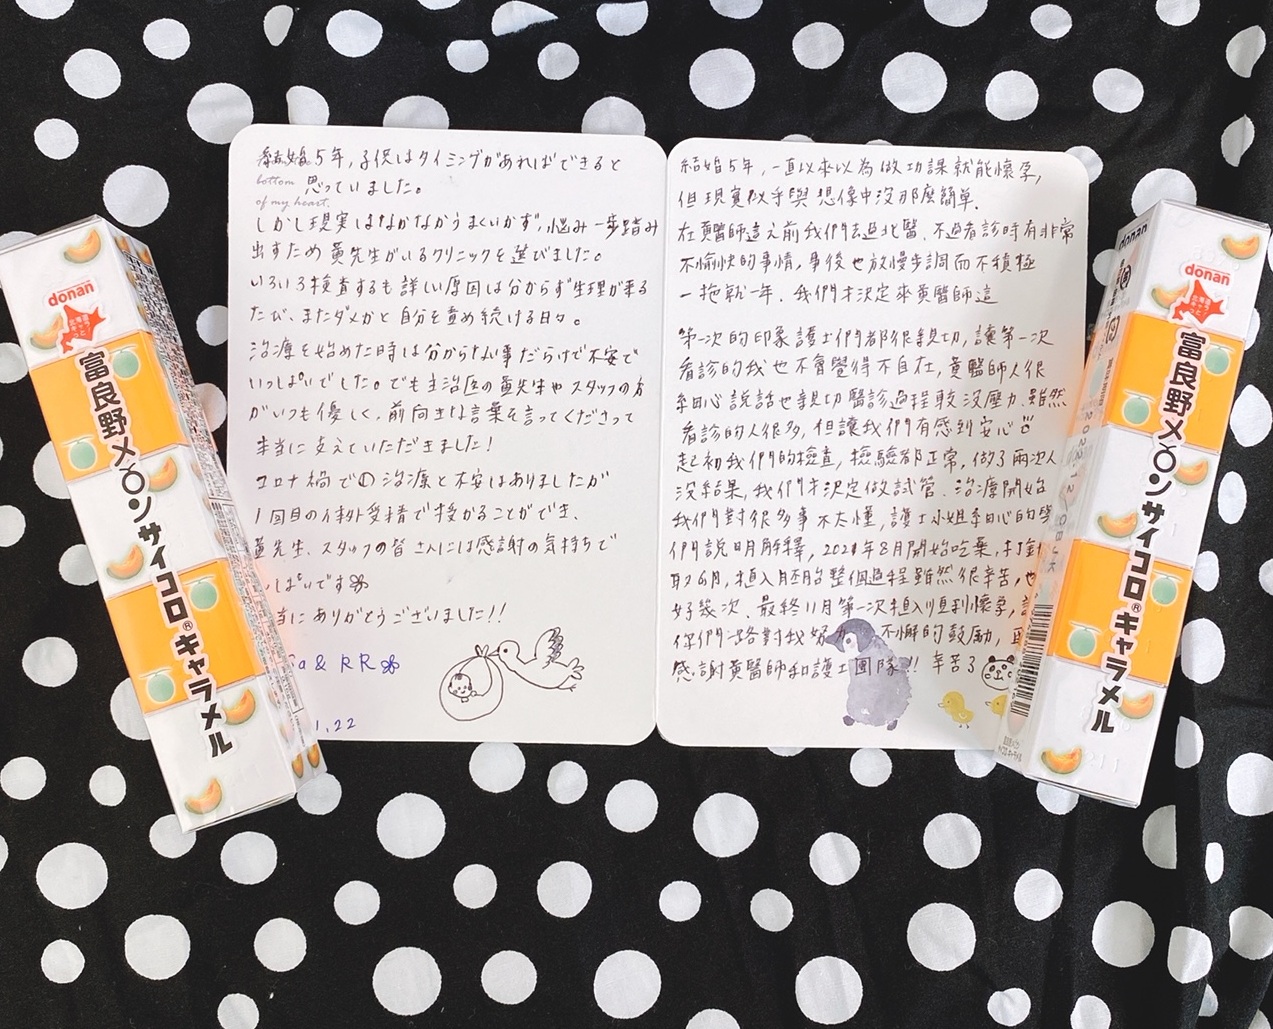 結婚5年,子供はタイミングがあればできると
bottom
思っていました。
of my heart.
しかし現実はなかなかうまくいかず,悩み一歩踏み
出すため黄先生がいるクリニックを選びました。
いろいろ検査するも詳しい原因は分からず生理が来る
たび、またダメかと自分を責め続ける日々。
治療を始めた時は分からない事だらけで不安で
いっぱいでした。でも主治医の黄先生やスタッフの方
がいつも優しく、前向きな言葉を言ってくださって
本当に支えていただきました!
コロナ禍での治療と不安はありましたが
1回目の体外受精で授かることができ、
黄先生、スタッフの皆さんには感謝の気持ちで
っぱいです
当にありがとうございました!!
a & RR
1.22
結婚5年,一直以來以為做功課就能懷孕,
但現實似乎與想像中沒那麼簡單.
在黃醫師這之前我們去過北醫、不過看診時有非常
不愉快的事情,事後也放慢步調而不積極
一拖就一年、我們才決定來黃醫師這
第一次的印象護士們都很親切,讓第一次
看診的我也不會覺得不自在,黃醫師人很
細心說話也親切醫診過程較沒壓力.雖然
看診的人很多,但讓我們有感到安心
起初我們的檢查,檢驗都正常,做了兩次人
沒結果,我們才決定做試管、治療開始
我們對很多事不太懂,護士小姐細心的與
們說明解釋,2021年8月開始吃藥,打針
取卵,植入胚胎整個過程雖然很辛苦,也
好幾次、最終11月第一次植入順利懷孕,
你們一路對我努力 不懈的鼓勵,
感謝黃醫師和護士團隊!! 辛苦了
donan
北海道
富良野メロンサイコロ®キャラメル
donan
donan
北海道
富良野メロンサイコロ®キャラメル